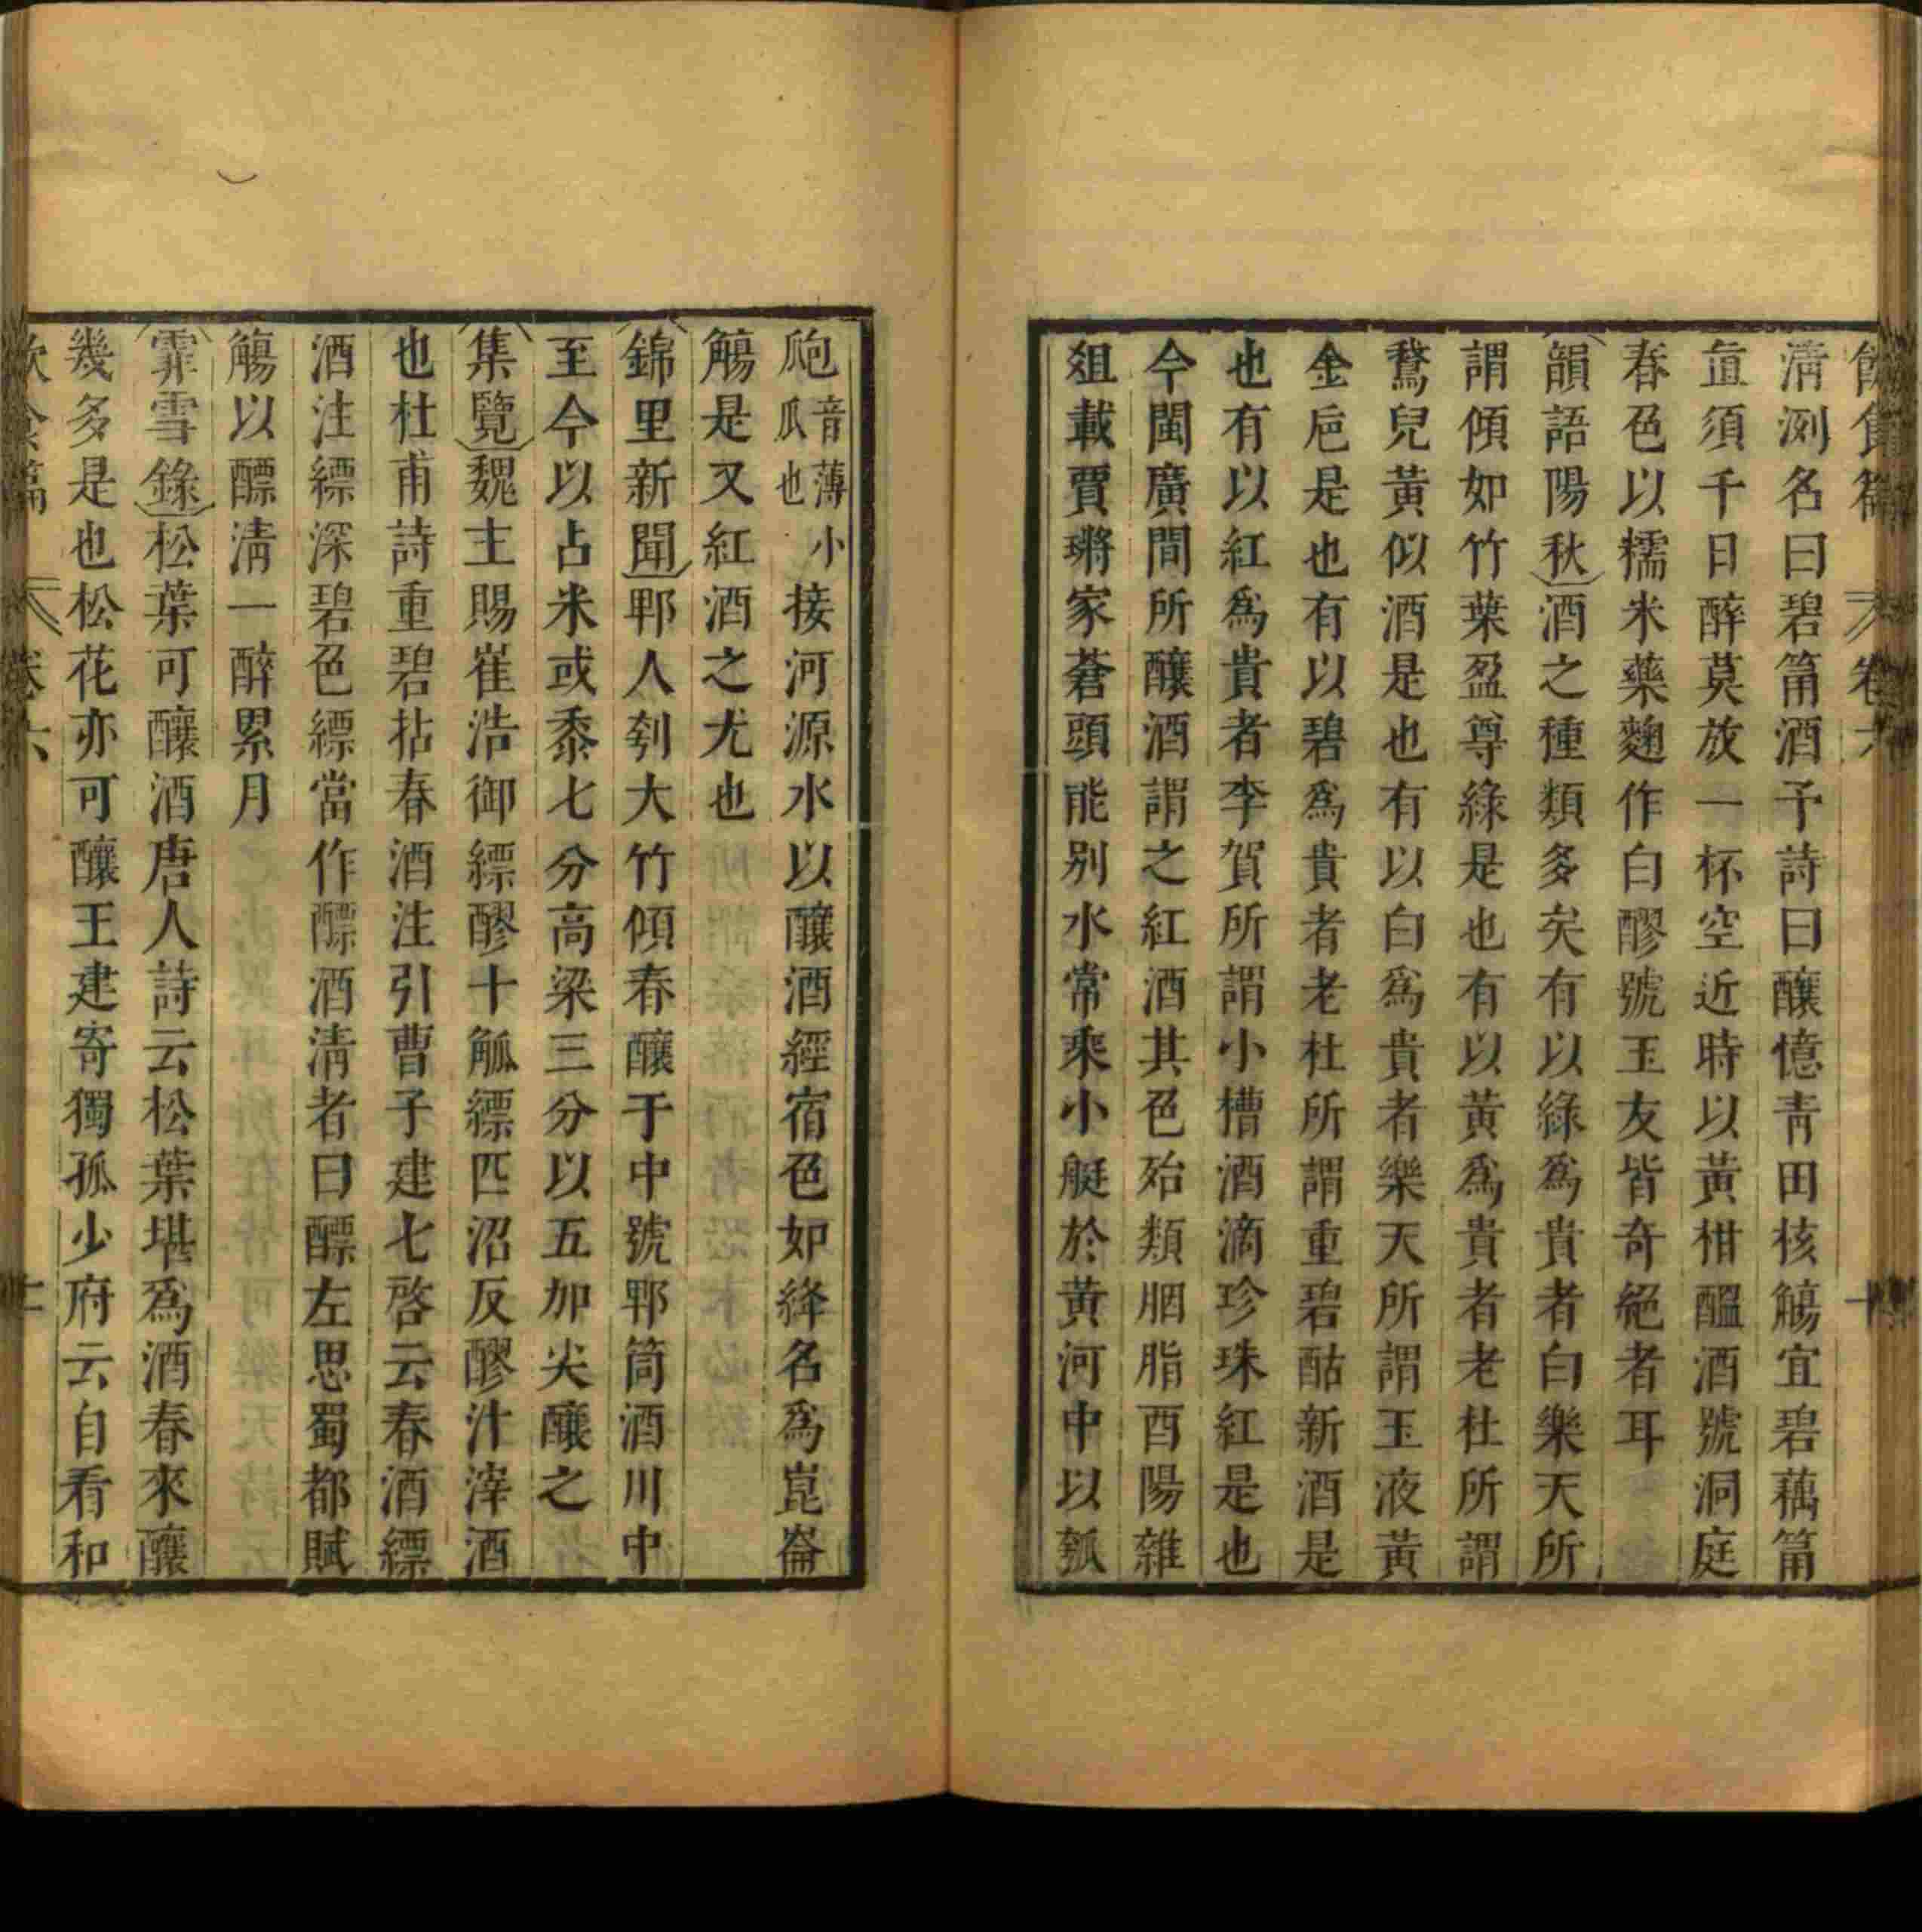 飲食篇 卷六 十
清洌名曰碧筩酒予詩曰釀憶青田核觴宜碧藕筩
直須千日醉莫放一杯空近時以黃柑醞酒號洞庭
春色以糯米藥麴作白醪號玉友皆奇絕者耳
韻語陽秋酒之種類多矣有以綠爲貴者白樂天所
謂傾如竹葉盈尊綠是也有以黃爲貴者老杜所謂
鵞兒黃似酒是也有以白爲貴者樂天所謂玉液黃
金巵是也有以碧爲貴者老杜所謂重碧酤新酒是
也有以紅爲貴者李賀所謂小槽酒滴珍珠紅是也
今閩廣間所釀酒謂之紅酒其色殆類胭脂酉陽雜
俎載賈瑺家蒼頭能别水常乘小艇於黃河中以瓠
瓟音薄小瓜也接河源水以釀酒經宿色如絳名爲崑崙
觴是又紅酒之尤也
錦里新聞郫人刳大竹傾春釀于中號郫筒酒川中
至今以占米或黍七分高粱三分以五加尖釀之
集覽魏主賜崔浩御縹醪十觚縹匹沼反醪汁滓酒
也杜甫詩重碧拈春酒注引曹子建七啓云春酒縹
酒注縹深碧色縹當作醥酒清者曰醥左思蜀都賦
觴以醥清一醉累月
霏雪錄松葉可釀酒唐人詩云松葉堪爲酒春來釀
幾多是也松花亦可釀王建寄獨孤少府云自看和
飲食篇 卷六 十